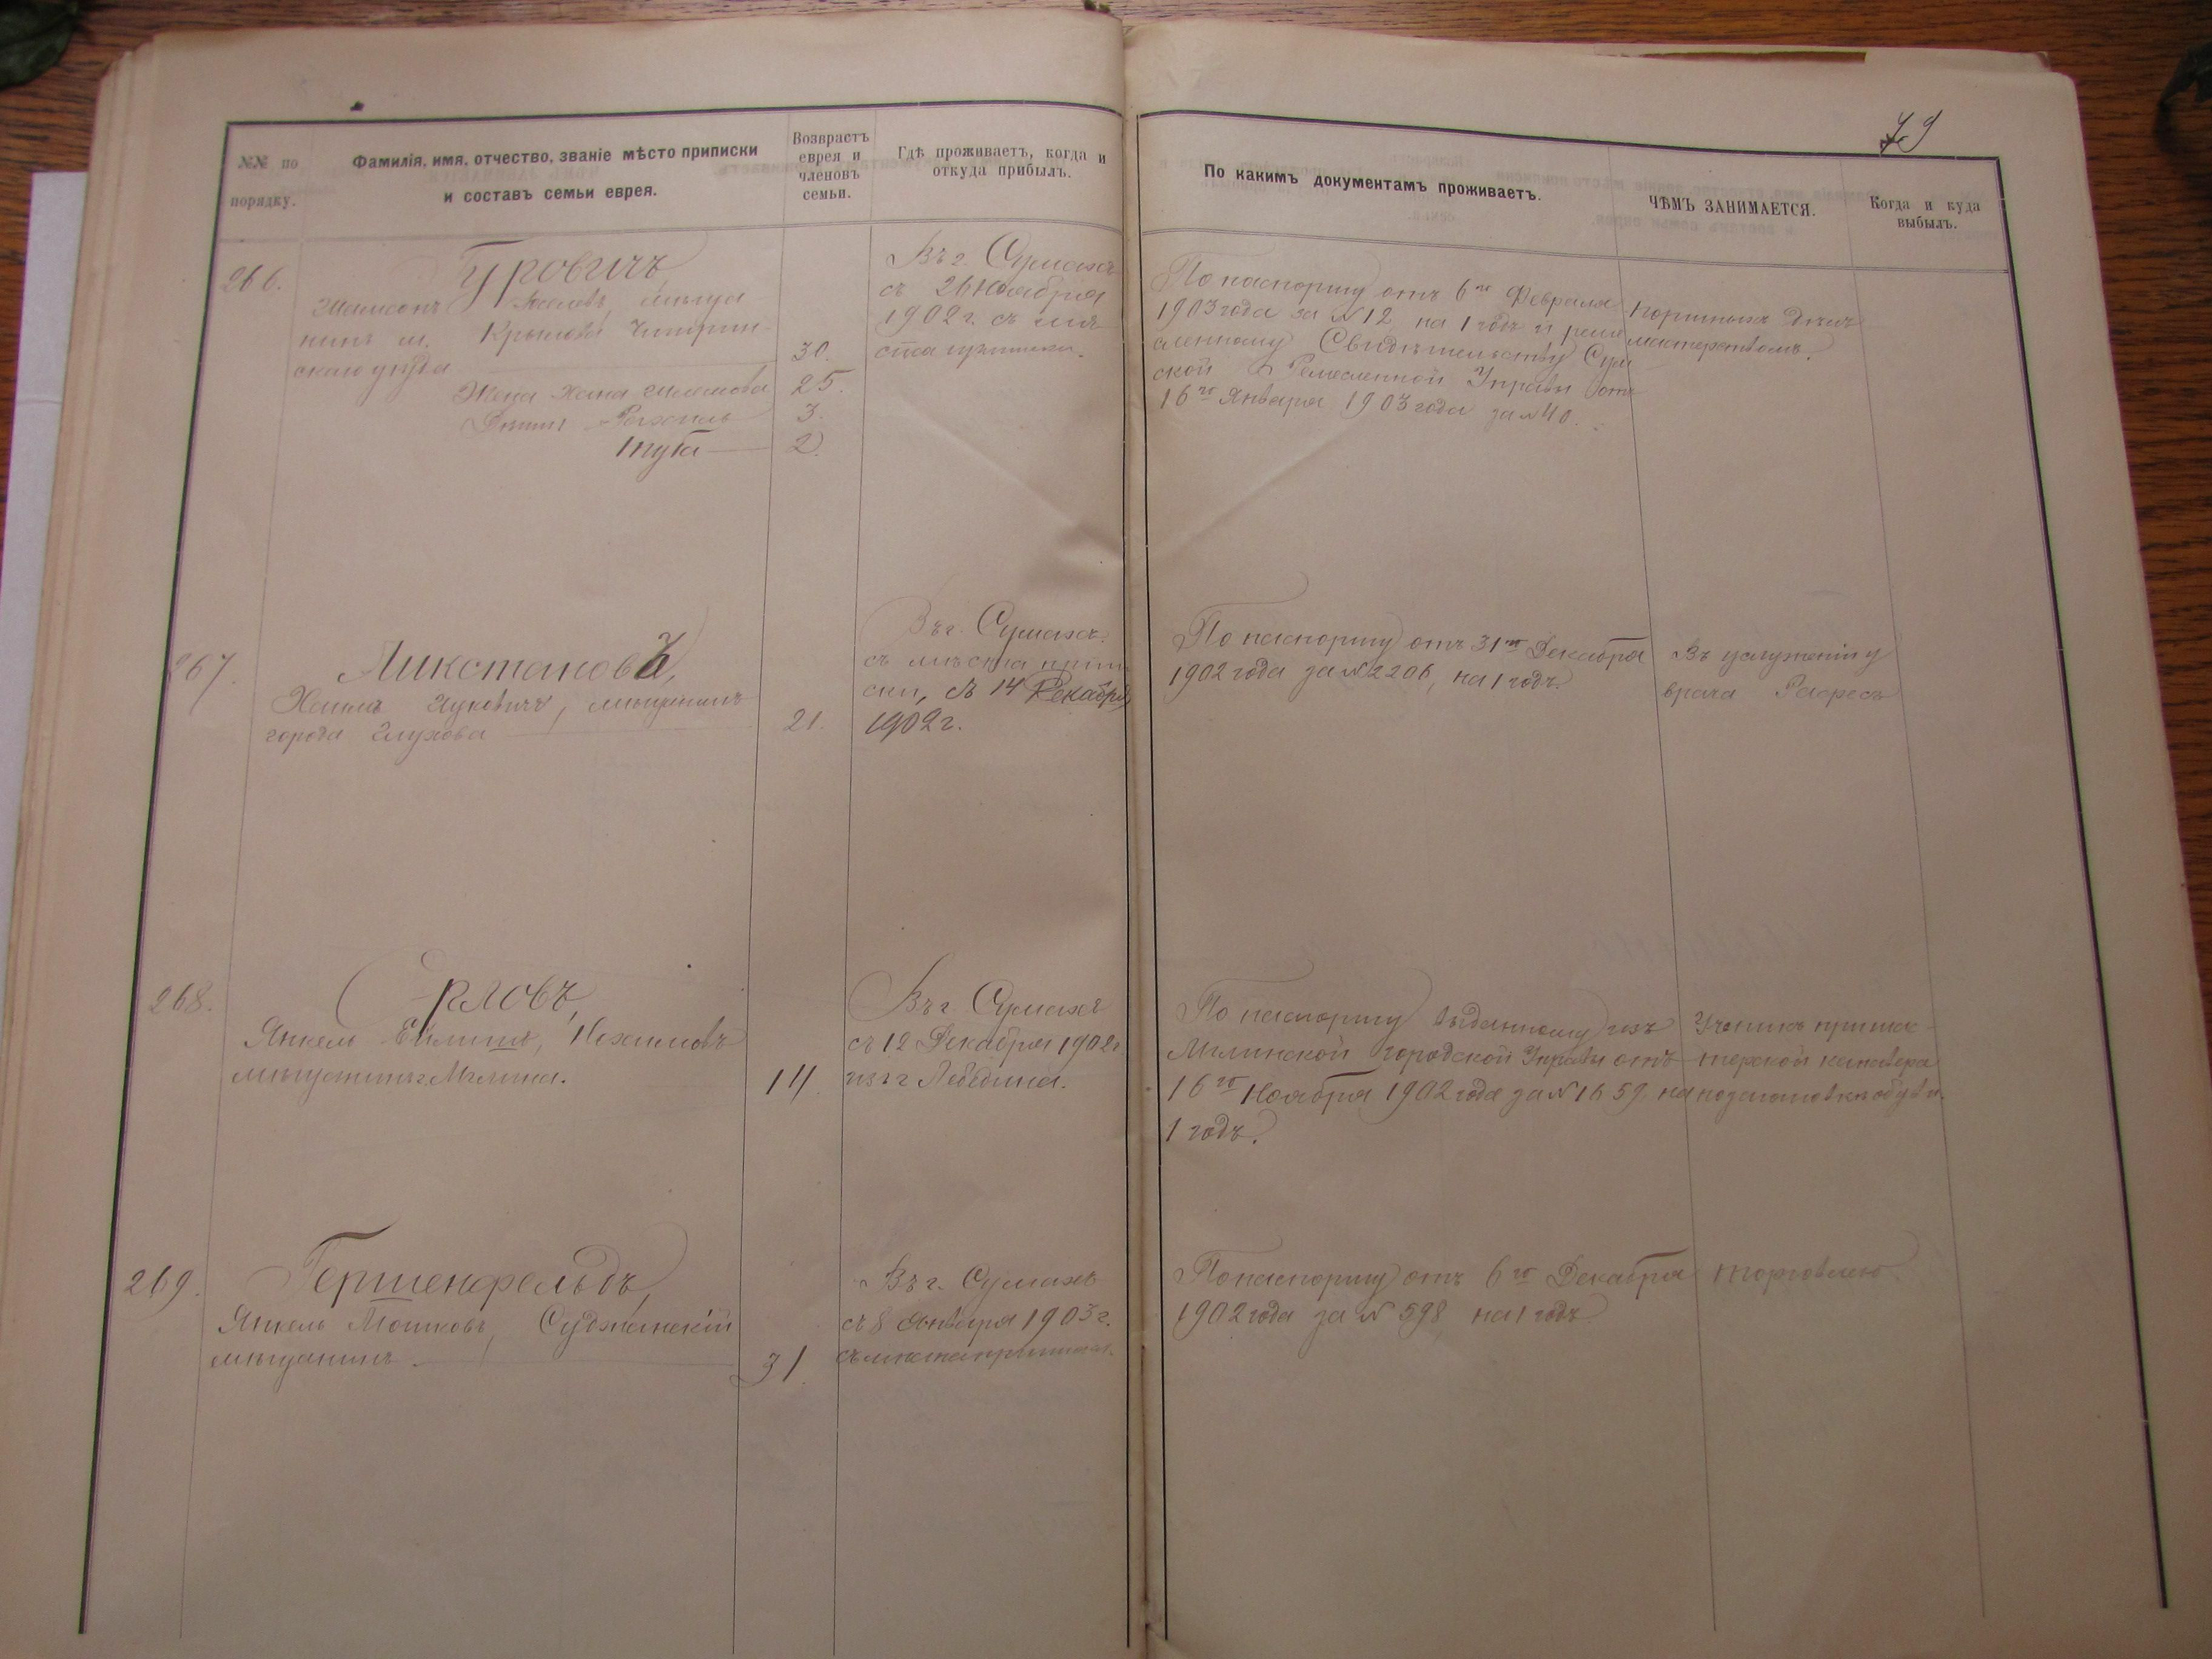 79
№№ по порядку.
Фамилія, имя, отчество, званіе мѣсто приписки
и составъ семьи еврея.
Возврастъ
еврея и
членовъ
семьи.
Гдѣ проживаетъ, когда и
откуда прибылъ.
По какимъ документамъ проживаетъ.
ЧѢМЪ ЗАНИМАЕТСЯ.
Когда и куда
выбылъ.
266.
Гуровичъ
нинъ м. Крылова Чигрин-
скаго уѣзда
30.
Жена Хана 25.
Дѣти Рахиль 3.
2.
Въ г. Сумахъ
съ 26 Ноября
1902 г. съ мѣ
ста приписки.
По паспорту отъ 6го Февраля
1903 года за № 12 на 1 годъ и реме
сленному Свидѣтельству Сум
ской Ремесленной Управы отъ
16го Января 1903 года за № 40.
мастерствомъ.
267.
города Глухова
21.
Въ г. Сумахъ
съ мѣста припи
ски, съ 14 Декабря
1902 г.
По паспорту отъ 31го Декабря
1902 года за № 2206, на 1 годъ.
Въ услуженіи у
врача
268.
Орловъ,
Янкель
мѣщанинъ г. Мглина.
14.
Въ г. Сумахъ
съ 12 Декабря 1902 г
изъ г Лебедина.
По паспорту выданному изъ
Мглинской городской Управы отъ
16го Ноября 1902 года за № 1659 на
1 годъ.
Ученикъ
обуви.
269.
Гершенфельдъ,
Янкель Мошковъ, Суджанскій
мѣщанинъ.
31.
Въ г. Сумахъ
съ 8 Января 1903 г.
съ мѣста приписки.
По паспорту отъ 6го Декабря
1902 года за № 598 на 1 годъ
торговлею